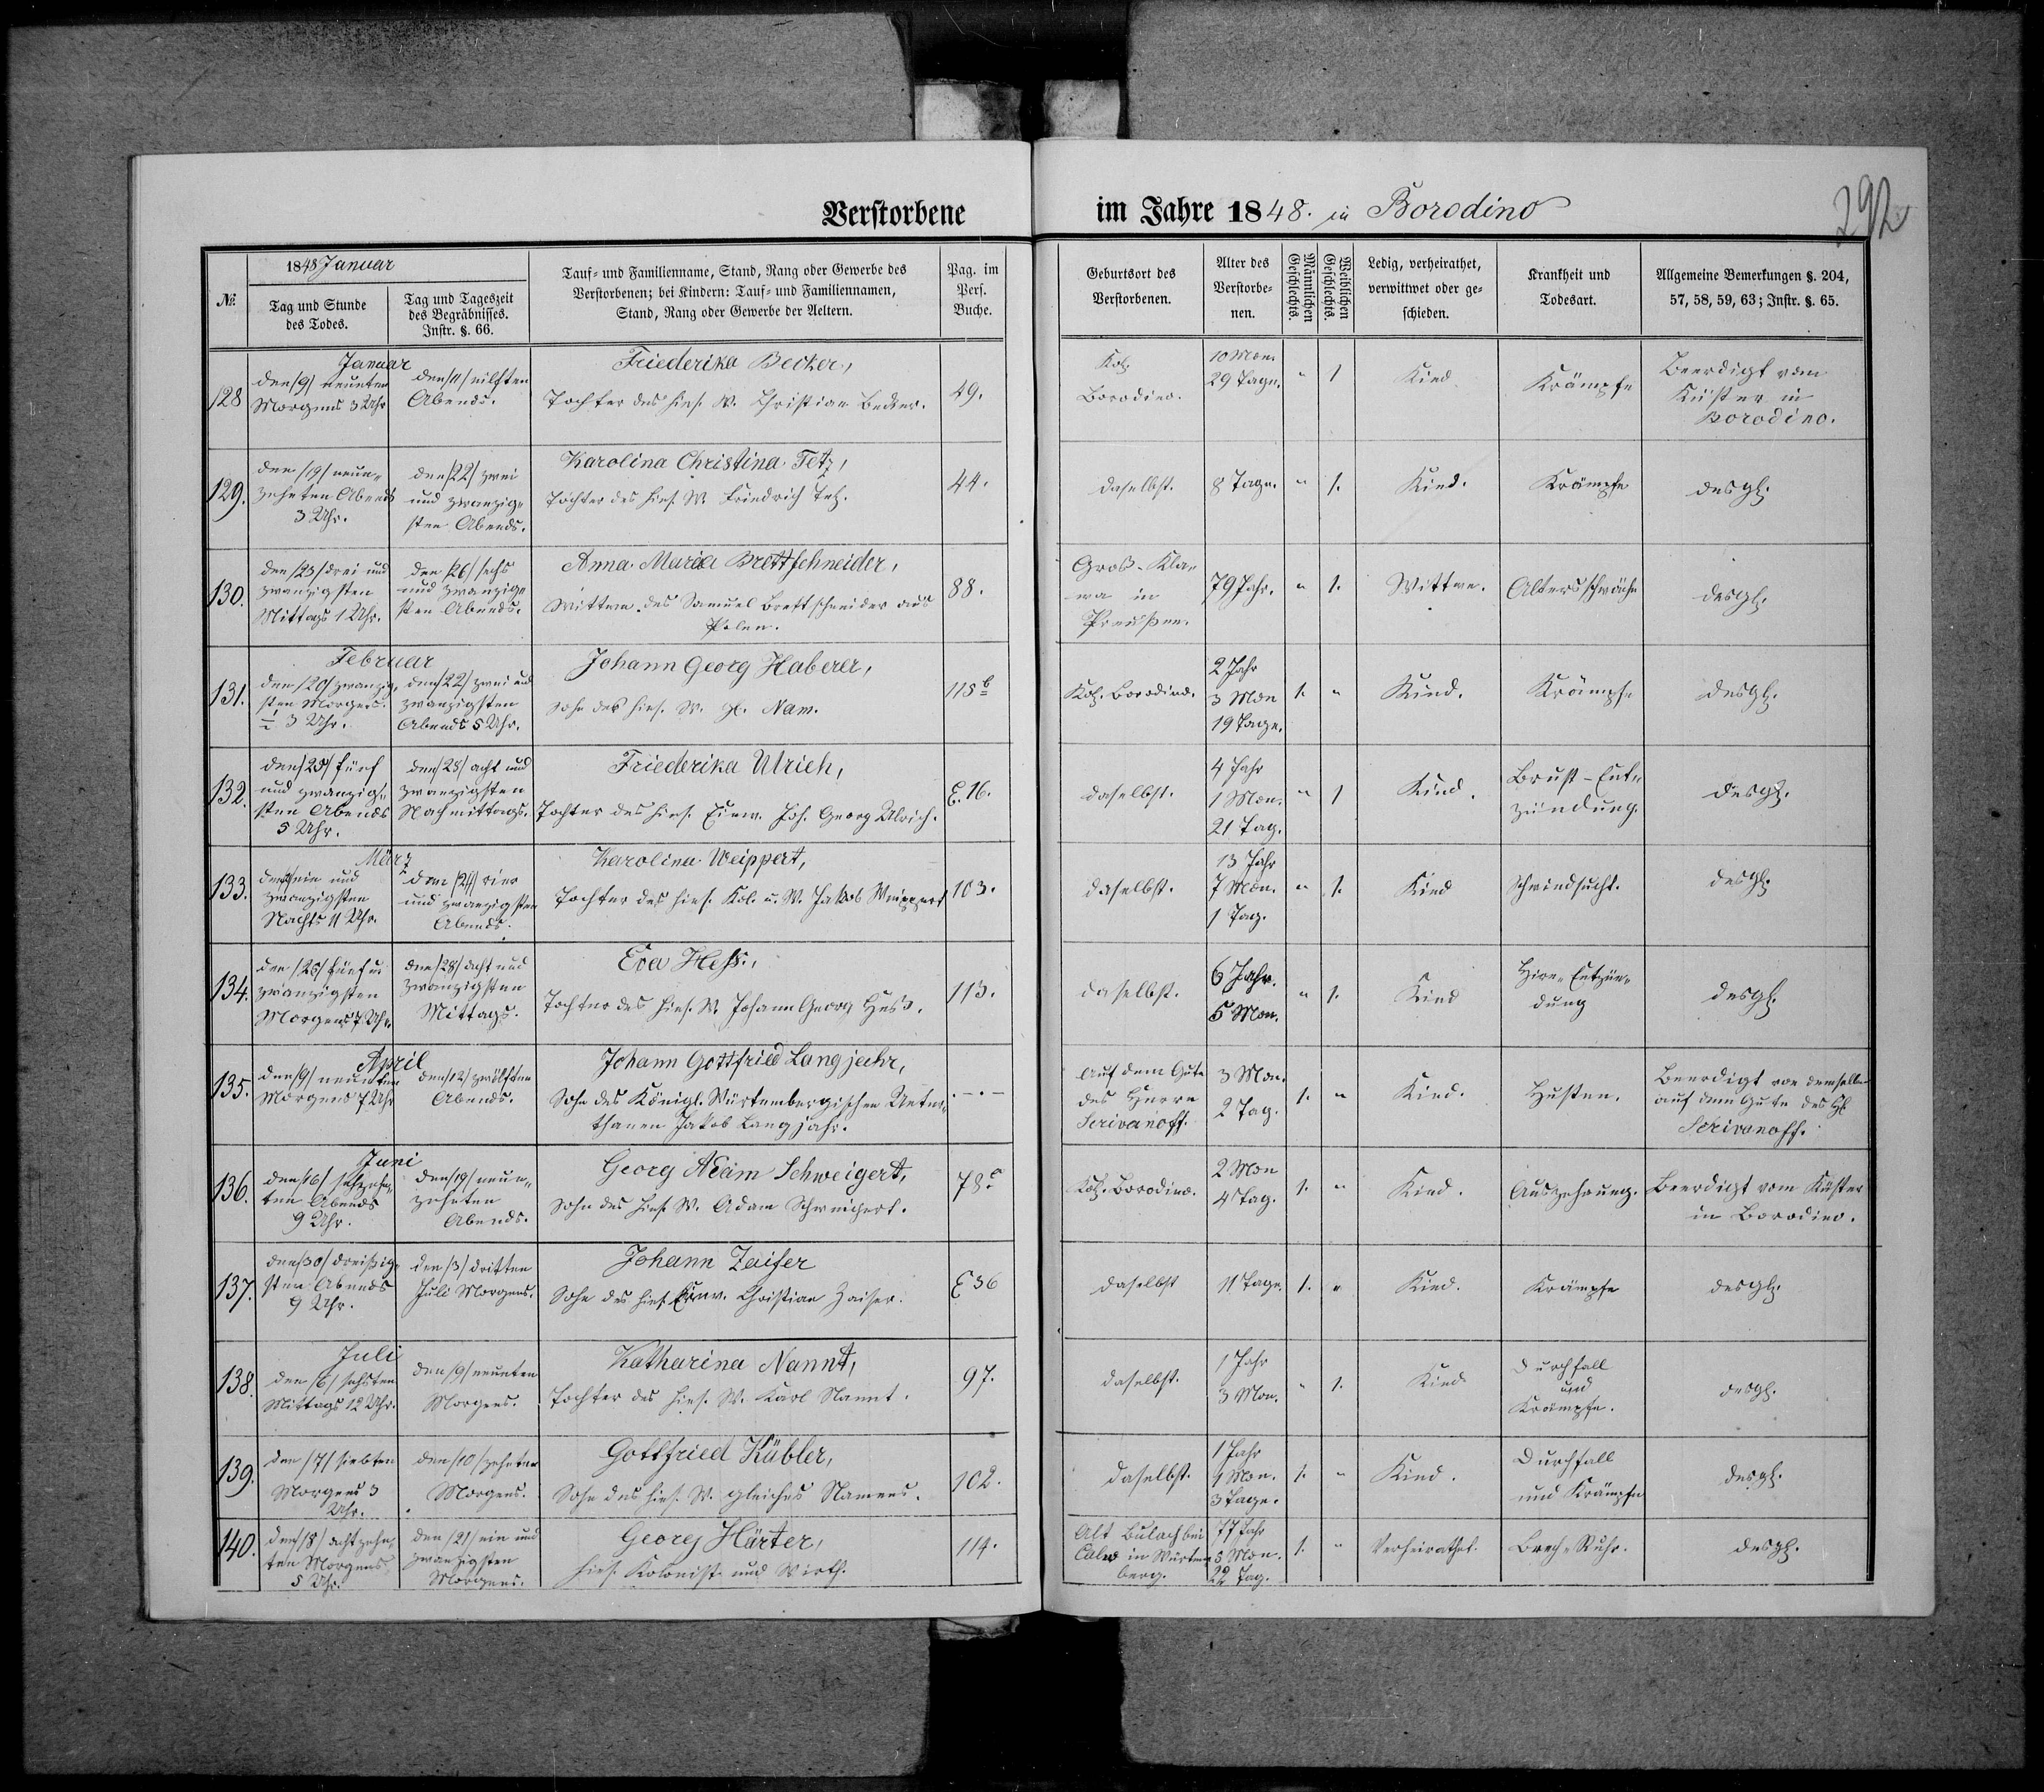 Verstorbene
im Jahre 1848. in Borodino
292
№
1848 Januar
Tag und Stunde
des Todes.
Tag und Tageszeit
des Begräbnisses.
Instr. §. 66.
Tauf- und Familienname, Stand, Rang oder Gewerbe des
Verstorbenen; bei Kindern: Tauf- und Familiennamen,
Stand, Rang oder Gewerbe der Aeltern.
Pag. im
Pers.
Buche.
Geburtsort des
Verstorbenen.
Alter des
Verstorbe-
nen.
Männlichen
Geschlechts.
Weiblichen
Geschlechts.
Ledig, verheirathet,
verwittwet oder ge-
schieden.
Krankheit und
Todesart.
Allgemeine Bemerkungen §. 204,
57, 58, 59, 63; Instr. §. 65.
128
Januar
den /9/ neunten
Morgens 3 Uhr
den /11/ eilften
Abends.
Friederika Becker,
Tochter des hies. W. Christian Becker.
49.
Kol.
Borodino.
10 Mon.
29 Tage.
" 1
Kind
Krämpfe
Beerdigt vom
Küster in
Borodino.
129.
den /19/ neun-
zehnten Abends
3 Uhr.
den /22/ zwei
und zwanzig-
sten Abends.
Karolina Christina Tetz,
Tochter des hies. W. Friedrich Tetz.
44.
daselbst.
8 Tage.
" 1.
Kind.
Krämpfe
desgl.
130.
den /23/ drei und
zwanzigsten
Mittags 1 Uhr.
den /26/ sechs
und zwanzig-
sten Abends.
Anna Maria Brettschneider,
Wittwe des Samuel Brettschneider aus
Polen.
88.
Groß-Kla-
wa in
Preußen.
79 Jahr.
" 1.
Wittwe.
Altersschwäche
desgl.
131.
Februar
den /20/ zwanzig-
sten Morgens
½ 3 Uhr.
den /22/ zwei und
zwanzigsten
Abends 5 Uhr.
Johann Georg Haberer,
Sohn des hies. W. gl. Nam.
115 b
Kol. Borodino.
2 Jahr
3 Mon
19 Tage.
1. "
Kind.
Krämpfe
desgl.
132.
den /25/ fünf
und zwanzig-
sten Abends
5 Uhr.
den /28/ acht und
zwanzigsten
Nachmittags.
Friederika Ulrich,
Tochter des hies. Einw. Joh. Georg Ulrich.
E. 16.
daselbst.
4 Jahr
1 Mon.
21 Tag.
" 1
Kind.
Brust-Ent-
zündung.
desgl.
133.
März
den ein und
zwanzigsten
Nachts 11 Uhr.
den /24/ vier
und zwanzigsten
Abends.
Karolina Weippert,
Tochter des hies. Kol. u. W. Jakob Weippert
103.
daselbst.
13 Jahr
7 Mon.
1 Tag.
" 1.
Kind
Schwindsucht.
desgl.
134.
den /25/ fünf u.
zwanzigsten
Morgens 7 Uhr.
den /28/ acht und
zwanzigsten
Mittags.
Eva Heß.,
Tochter des hies. W. Johann Georg Heß.
113.
daselbst.
6 Jahr.
5 Mon.
" 1.
Kind
Hirn-Entzün-
dung
desgl.
135.
April
den /9/ neunten
Morgens 7 Uhr
den /12/ zwölften
Abends.
Johann Gottfried Langjahr,
Sohn des Königl. Würtembergischen Unter-
thanen Jakob Langjahr.
.—.—
Auf dem Gute
des Herrn
Scrivanoff.
3 Mon.
2 Tag.
1. "
Kind.
Husten.
Beerdigt von demselben
auf dem Gute des H.
Scrivanoff.
136.
Juni
den /16/ sechzehn-
ten Abends
9 Uhr.
den /19/ neun-
zehnten
Abends.
Georg Adam Schweigert,
Sohn des hies. W. Adam Schweichert.
78 a
Kol. Borodino.
2 Mon
4 Tag.
1. "
Kind.
Auszehrung.
Beerdigt vom Küster
in Borodino.
137.
den /30/ dreißig-
sten Abends
9 Uhr.
den /3/ dritten
Juli Morgens.
Johann Zaiser
Sohn des hies. Einw. Christian Zaiser.
E 36
daselbst
11 Tage.
1. "
Kind.
Krämpfe
desgl.
138.
Juli
den /6/ sechsten
Mittags 12 Uhr.
den /9/ neunten
Morgens.
Katharina Nannt,
Tochter des hies. W. Karl Nannt.
97.
daselbst.
1 Jahr
3 Mon.
" 1.
Kind
Durchfall
und
Krämpfe.
desgl.
139.
den /7/ siebten
Morgens 3
Uhr.
den /10/ zehnten
Morgens.
Gottfried Kübler,
Sohn des hies. W. gleiches Namens.
102.
daselbst.
1 Jahr
4 Mon.
3 Tage.
1. "
Kind.
Durchfall
und Krämpfe
desgl.
140.
den /18/ achtzehn-
ten Morgens
5 Uhr.
den /21/ ein und
zwanzigsten
Morgens.
Georg Härter,
hies. Kolonist und Wirth.
114.
Alt Bulach bei
Calw in Würtem-
berg.
77 Jahr
5 Mon.
22 Tag.
1. "
Verheirathet.
Brech-Ruhr.
desgl.